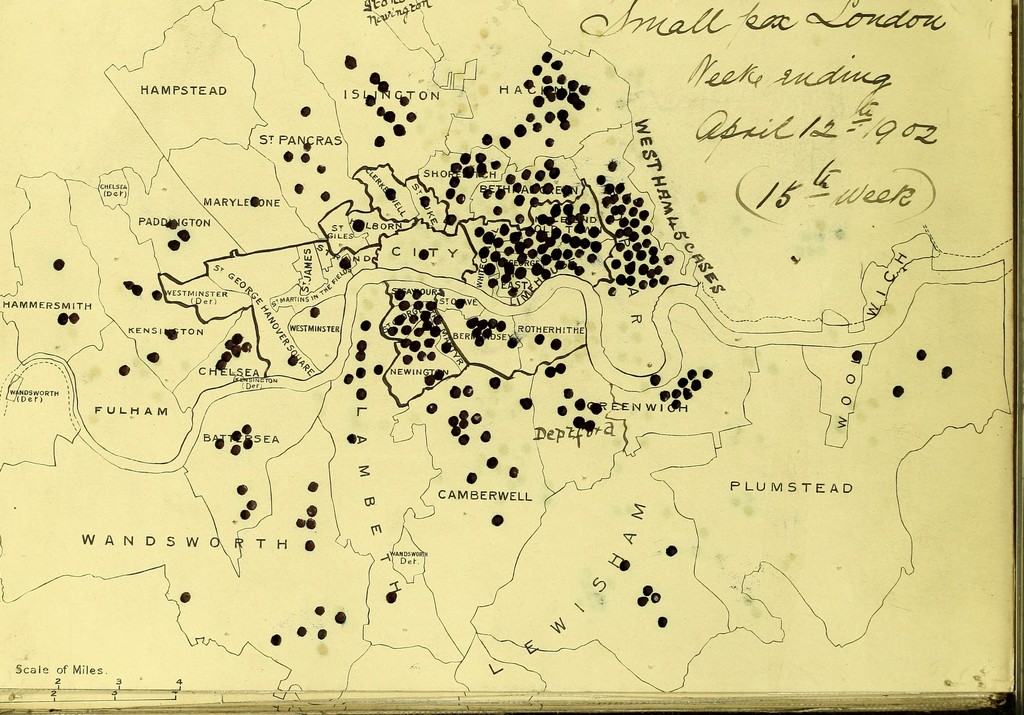 Newington
Small pox London
Week ending
April 12th 1902
15th Week
HAMPSTEAD
ISLINGTON
HACKN
ST PANCRAS
WESTHAM 45 CASES
SHOREDITCH
CLERKENWELL
ST LUKE
BETHNAL GREEN
CHELSEA
(Det)
MARYLEBONE
PADDINGTON
HOLBORN
ST GILES
STRAND
CITY
MILE END
OLD T
WHITE
ST GEORGE
EAST
LIMEH
P
L
A
R
WOOLWICH
ST JAMES
ST MARTINS IN THE FIELDS
ST GEORGE HANOVER SQUARE
WESTMINSTER
(Det)
WESTMINSTER
HAMMERSMITH
KENSINGTON
ST SAVIOUR
ST OLAVE
BERMONDSEY
ROTHERHITHE
NEWINGTON
CHELSEA
KENSINGTON
(Det)
WANDSWORTH
(Det)
FULHAM
BATTERSEA
LAMBETH
GREENWICH
Deptford
CAMBERWELL
PLUMSTEAD
WANDSWORTH
WANDSWORTH
Det.
LEWISHAM
Scale of Miles.
2 3 4
2 3 4